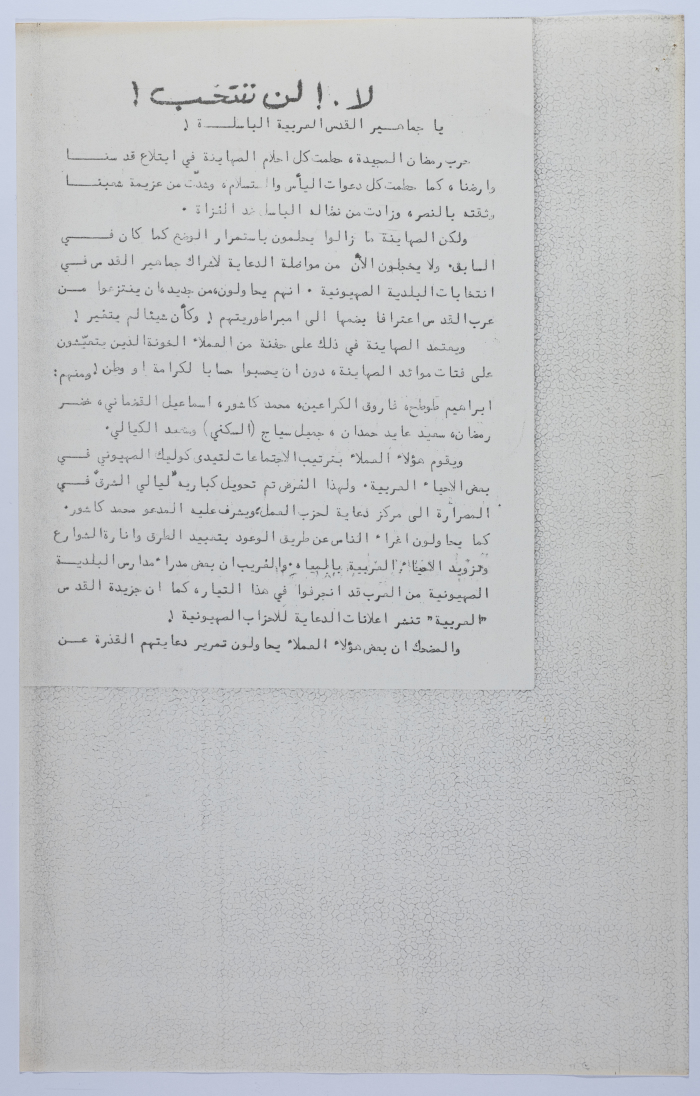 لا . ! لن ننتخب !
يا جماهير القدس العربية الباسلة !
حرب رمضان المجيدة، حطمت كل احلام الصهاينة في ابتلاع قدسنا
وارضنا، كما حطمت كل دعوات اليأس والاستسلام، وشدّت من عزيمة شعبنا
وثقته بالنصر، وزادت من نضاله الباسل ضد الغزاة .
ولكن الصهاينة ما زالوا يحلمون باستمرار الوضع كما كان في
السابق. ولا يخجلون الآن من مواصلة الدعاية لاشراك جماهير القدس في
انتخابات البلدية الصهيونية . انهم يحاولون، من جديد، ان ينتزعوا من
عرب القدس اعترافا بضمها الى امبراطوريتهم ! وكأن شيئا لم يتغير !
ويعتمد الصهاينة في ذلك على حفنة من العملاء الخونة الذين يتعيّشون
على فتات موائد الصهاينة، دون ان يحسبوا حسابا لكرامة او وطن ! ومنهم:
ابراهيم طوطح، فاروق الكراعين، محمد كاشور، اسماعيل القضماني، خضر
رمضان، سعيد عايد حمدان، جميل سياج (السكني) وسعد الكيالي.
ويقوم هؤلاء العملاء بترتيب الاجتماعات لتيدي كوليك الصهيوني في
بعض الاحياء العربية. ولهذا الغرض تم تحويل كباريه "ليالي الشرق" في
المصرارة الى مركز دعاية لحزب العمل، ويشرف عليه المدعو محمد كاشور.
كما يحاولون اغراء الناس عن طريق الوعود بتعبيد الطرق وانارة الشوارع
وتزويد الاحياء العربية بالمياه. والغريب ان بعض مدراء مدارس البلدية
الصهيونية من العرب قد انجرفوا في هذا التيار، كما ان جريدة القدس
"العربية" تنشر اعلانات الدعاية للاحزاب الصهيونية !
والمضحك ان بعض هؤلاء العملاء يحاولون تمرير دعايتهم القذرة عن